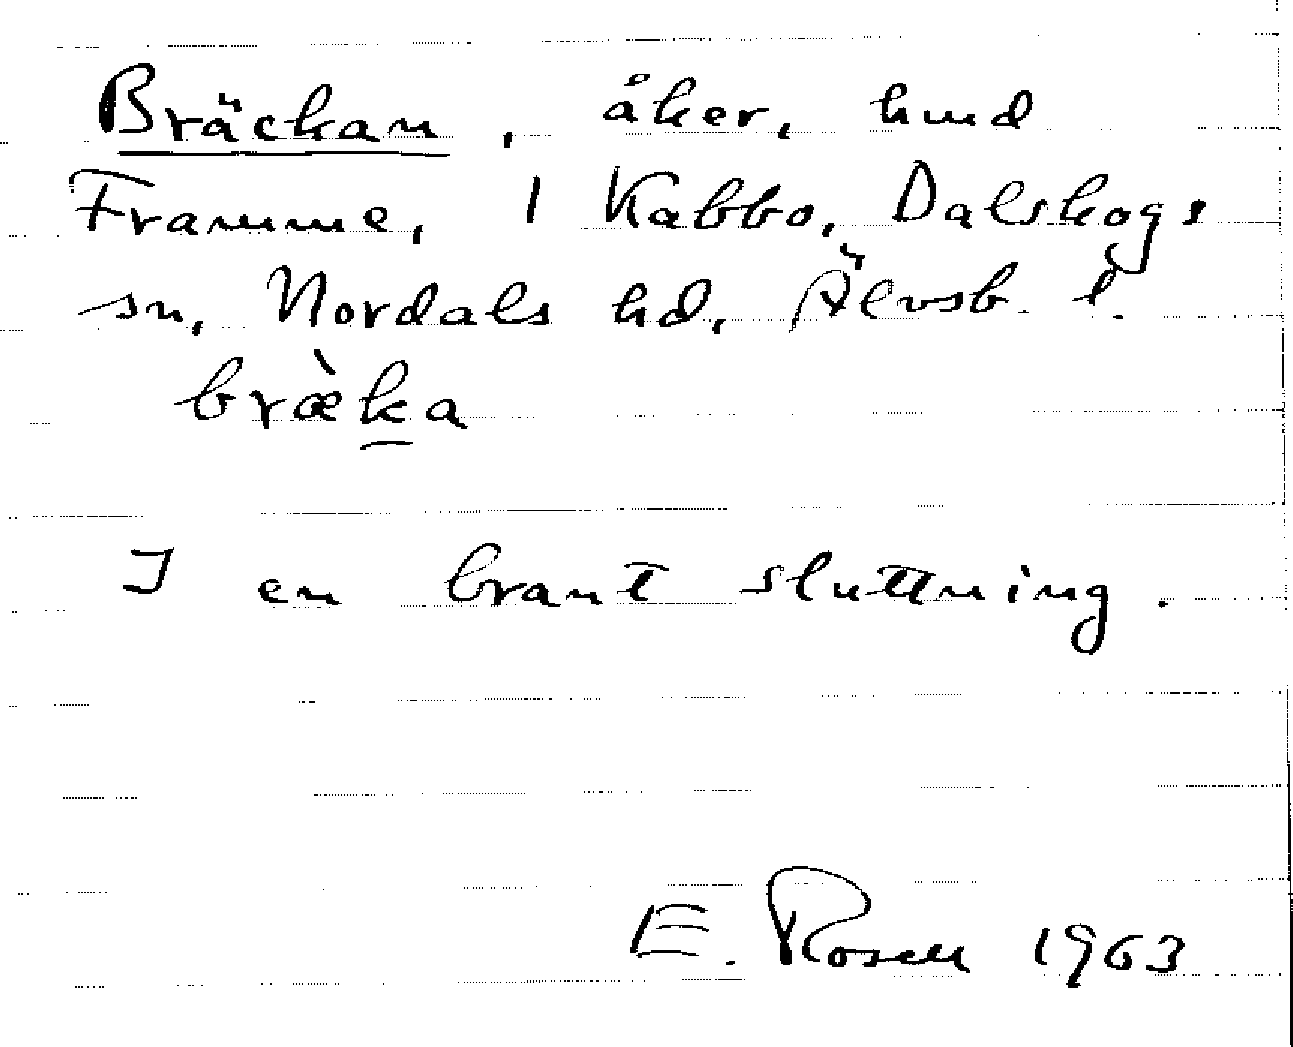 Bräckan, åker, hmd
Framme, 1 Kabbo, Dalskogs
sn, Nordals hd, Älvsb. l.
bræ̀ka
I en brant sluttning.
E. Rosell 1963